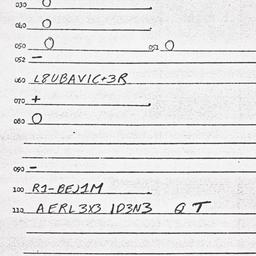 030 O
040 O
050 O 051 O
052 –
060 L8UBAVIC+3R
070 +
080 O
090 –
100 R1-BEJ1M
110 AERL3X3 1D3N3 Q T